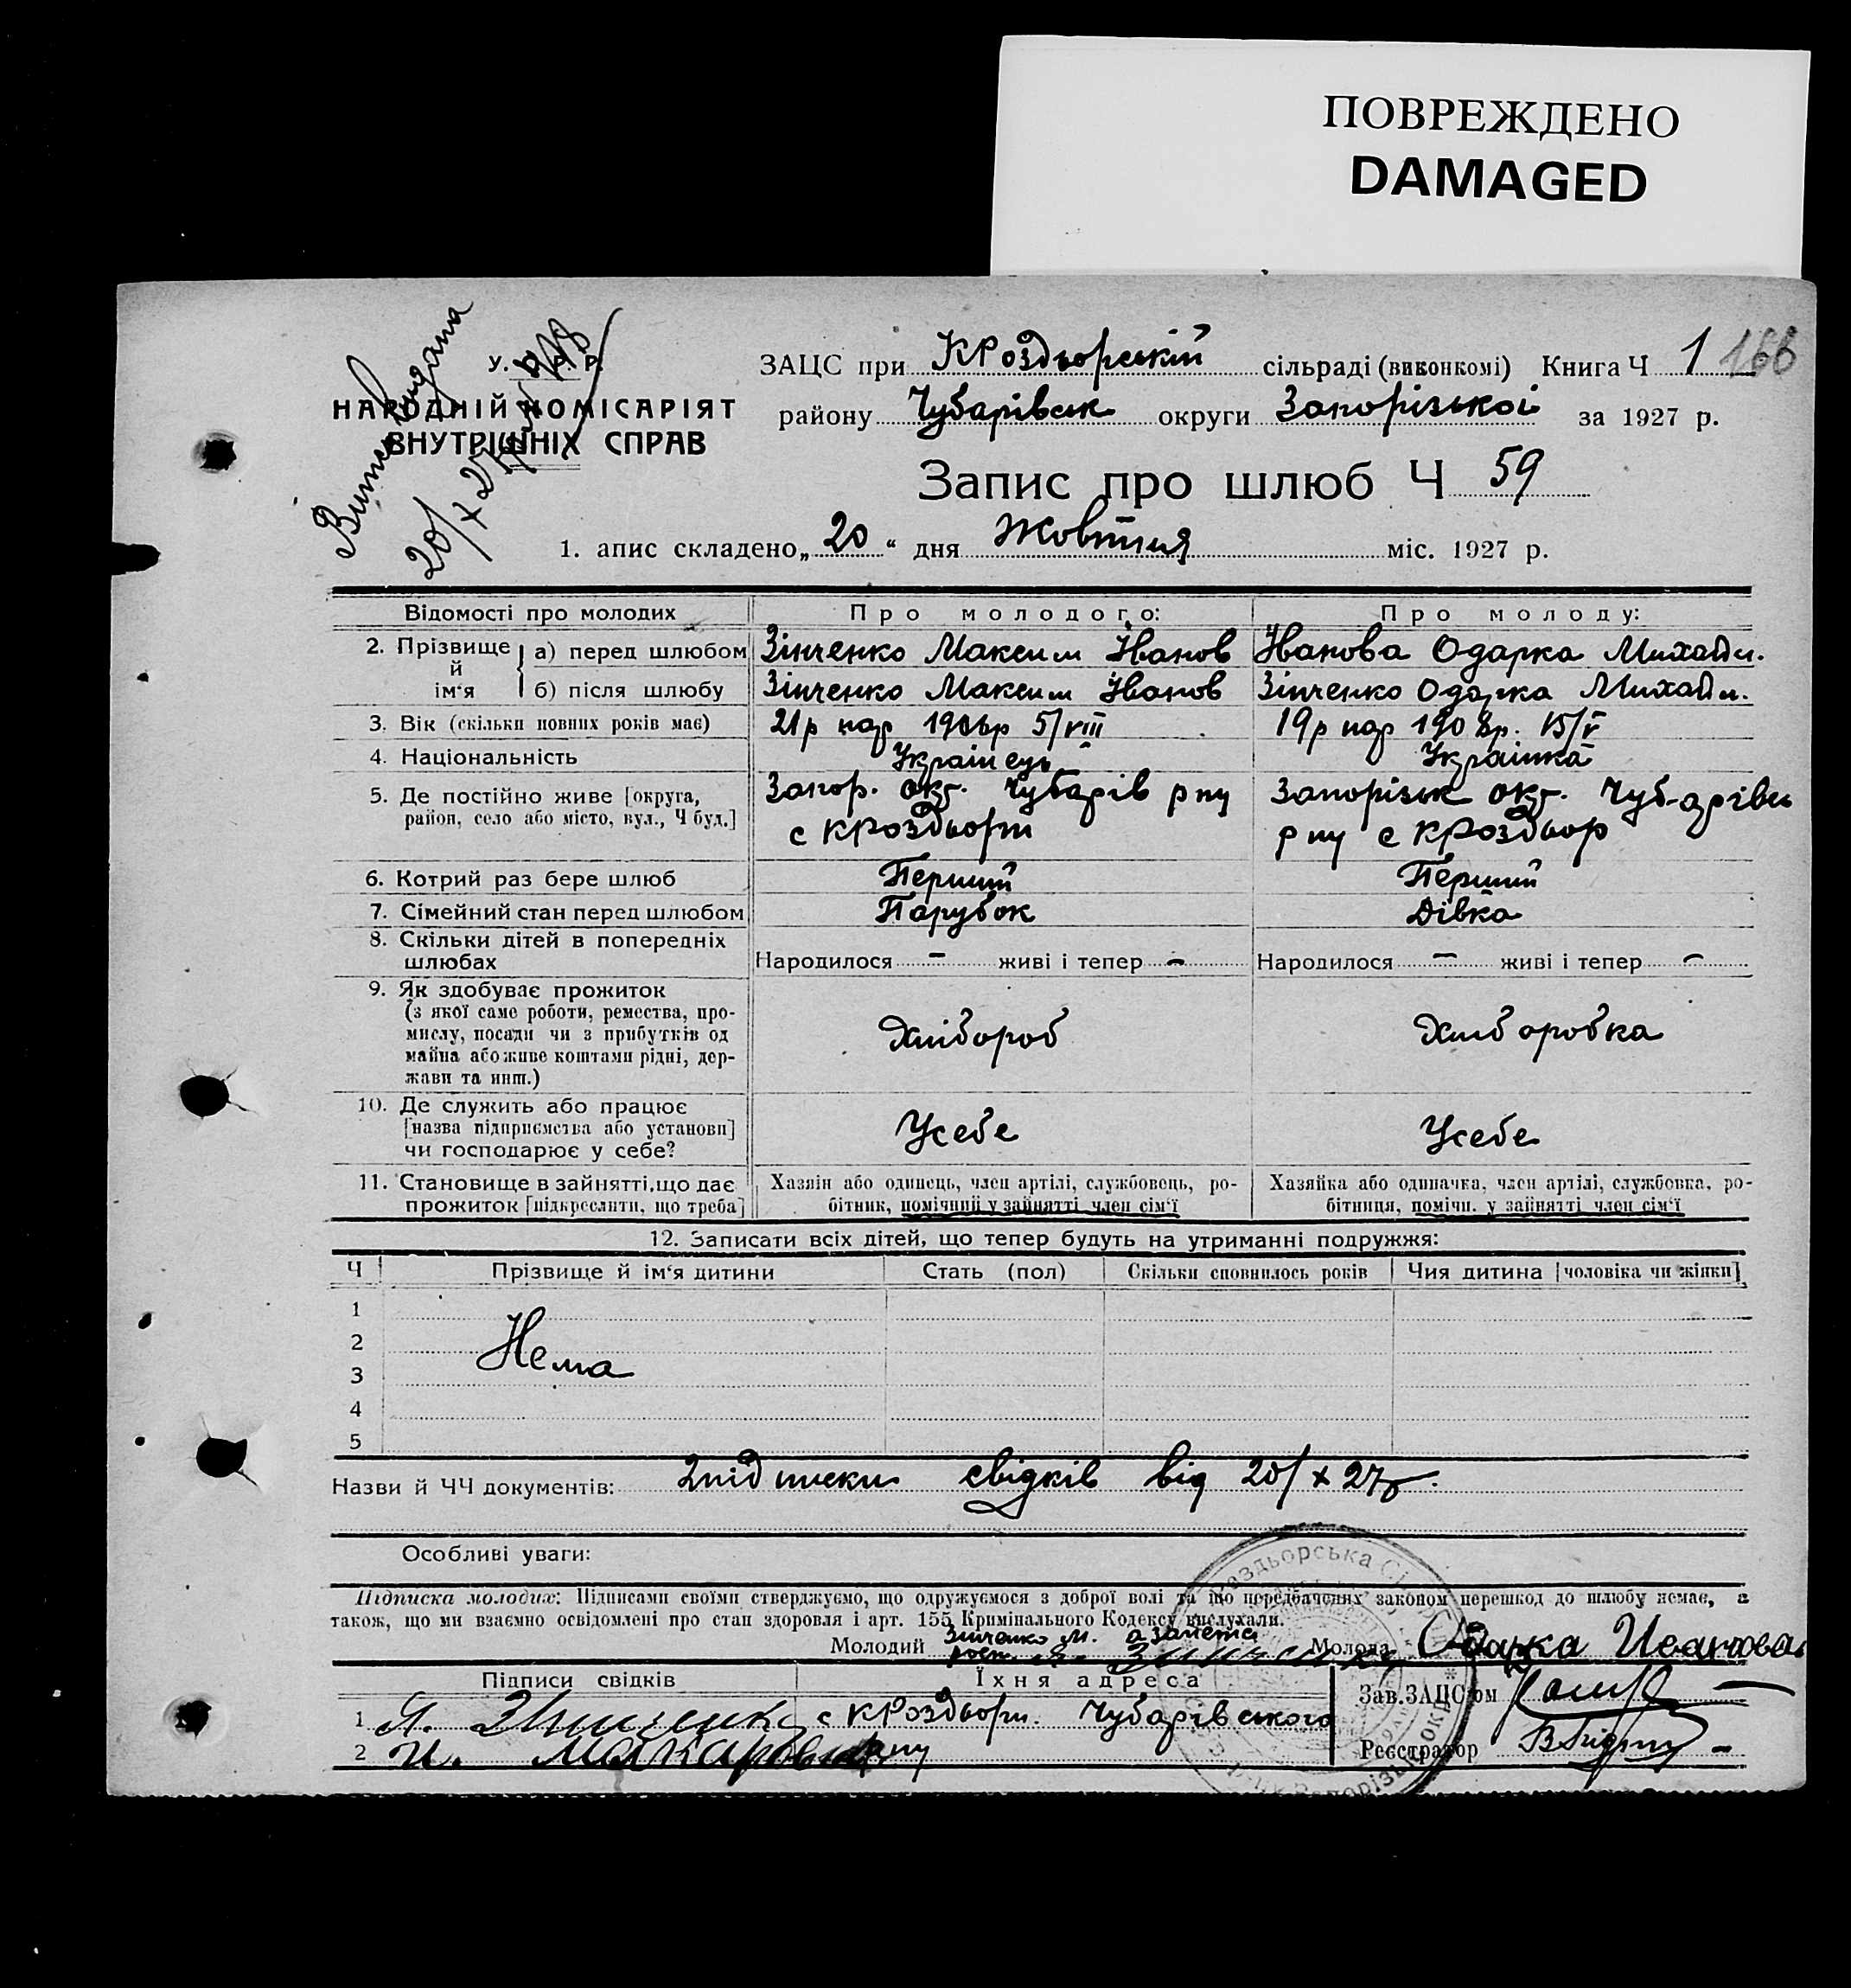 ПОВРЕЖДЕНО
DAMAGED
Витяг видана
20/X 27
У. С. Р. Р.
НАРОДНІЙ КОМІСАРІЯТ
ВНУТРІШНІХ СПРАВ
ЗАЦС при КРоздьорській сільраді (виконкомі) Книга Ч 1 166
району Чубарівськ округи Запорізької за 1927 р.
Запис про шлюб Ч 59
1. апис складено „20“ дня Жовтня міс. 1927 р.
Відомості про молодих Про молодого: Про молоду:
2. Прізвище й ім‘я а) перед шлюбом Зінченко Максим Іванов Іванова Одарка Михайл.
б) після шлюбу Зінченко Максим Іванов Зінченко Одарка Михайл.
3. Вік (скільки повних років має) 21р нар 1906р 5/VIII 19р нар 1908р. 15/V
4. Національність Українець Українка
5. Де постійно живе [округа, Запор. окр. Чубарів рну Запорізьк окр. Чуб-арівсь
район, село або місто, вул., Ч буд.] с КРоздьори рну с КРоздьор
6. Котрий раз бере шлюб Перший Перший
7. Сімейний стан перед шлюбом Парубок Дівка
8. Скільки дітей в попередніх
шлюбах Народилося – живі і тепер – Народилося – живі і тепер –
9. Як здобуває прожиток
(з якої саме роботи, ремества, про-
мислу, посади чи з прибутків од Хлібороб Хліборобка
майна або живе коштами рідні, дер-
жави та инш.)
10. Де служить або працює
[назва підприємства або установи] Усебе Усебе
чи господарює у себе?
11. Становище в зайнятті, що дає Хазяїн або одинець, член артілі, службовець, ро- Хазяйка або одиначка, член артілі, службовка, ро-
прожиток [підкреслити, що треба] бітник, помічний у зайнятті член сім‘ї бітниця, помічн. у зайнятті член сім‘ї
12. Записати всіх дітей, що тепер будуть на утриманні подружжя:
Ч Прізвище й ім‘я дитини Стать (пол) Скільки сповнилось років Чия дитина [чоловіка чи жінки]
1
2 Нема
3
4
5
Назви й ЧЧ документів: 2 підписки свідків від 20/X 27р.
Особливі уваги:
Підписка молодих: Підписами своїми стверджуємо, що одружуємося з доброї волі та що передбачених законом перешкод до шлюбу немає, а
також, що ми взаємно освідомлені про стан здоровля і арт. 155 Кримінального Кодексу вислухали.
Молодий Зінченко М. а за нета Молода Одарка Иванова
Підписи свідків Їхня адреса Зав. ЗАЦС‘ом
1 с КРоздьори. Чубарівського
2 И. рну Реєстратор